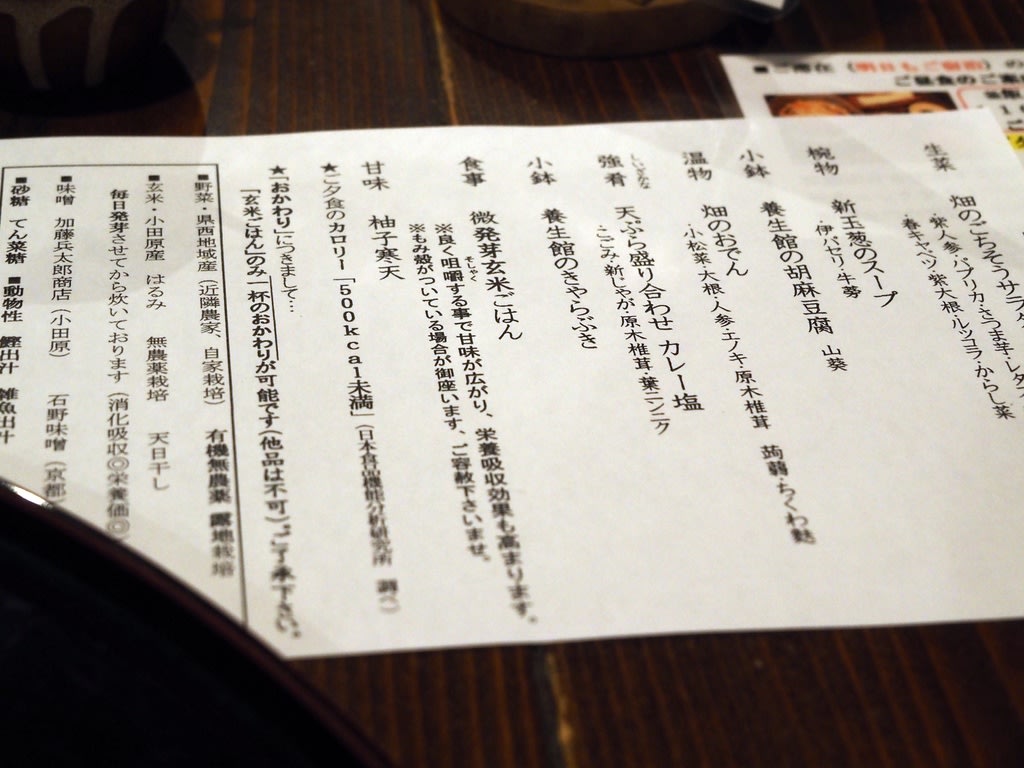 生菜 畑のごちそうサラダ
・紫人参・パプリカ・さつま芋・レタス
・春キャベツ・紫大根・ルッコラ・からし菜
椀物 新玉葱のスープ
・伊パセリ・牛蒡
小鉢 養生館の胡麻豆腐 山葵
温物 畑のおでん
・小松菜・大根・人参・エノキ・原木椎茸 蒟蒻・ちくわ麩
強肴 天ぷら盛り合わせ カレー塩
・こごみ・新じゃが・原木椎茸・葉ニンニク
小鉢 養生館のきゃらぶき
食事 微発芽玄米ごはん
※良く咀嚼する事で甘味が広がり、栄養吸収効果も高まります。
そしゃく
※もみ殻がついている場合が御座います、ご容赦下さいませ。
甘味 柚子寒天
★ご夕食のカロリー「500kcal未満」(日本食品機能分析研究所 調べ)
★「おかわり」につきまして…
「玄米ごはん」のみ一杯のおかわりが可能です(他品は不可)。ご了承下さい。
■野菜・県西地域産(近隣農家、自家栽培) 有機無農薬 露地栽培
■玄米・小田原産 はるみ 無農薬栽培 天日干し
毎日発芽させてから炊いております(消化吸収◎栄養価◎)
■味噌 加藤兵太郎商店(小田原) 石野味噌(京都)
■砂糖 てん菜糖 ■動物性 鰹出汁 雑魚出汁